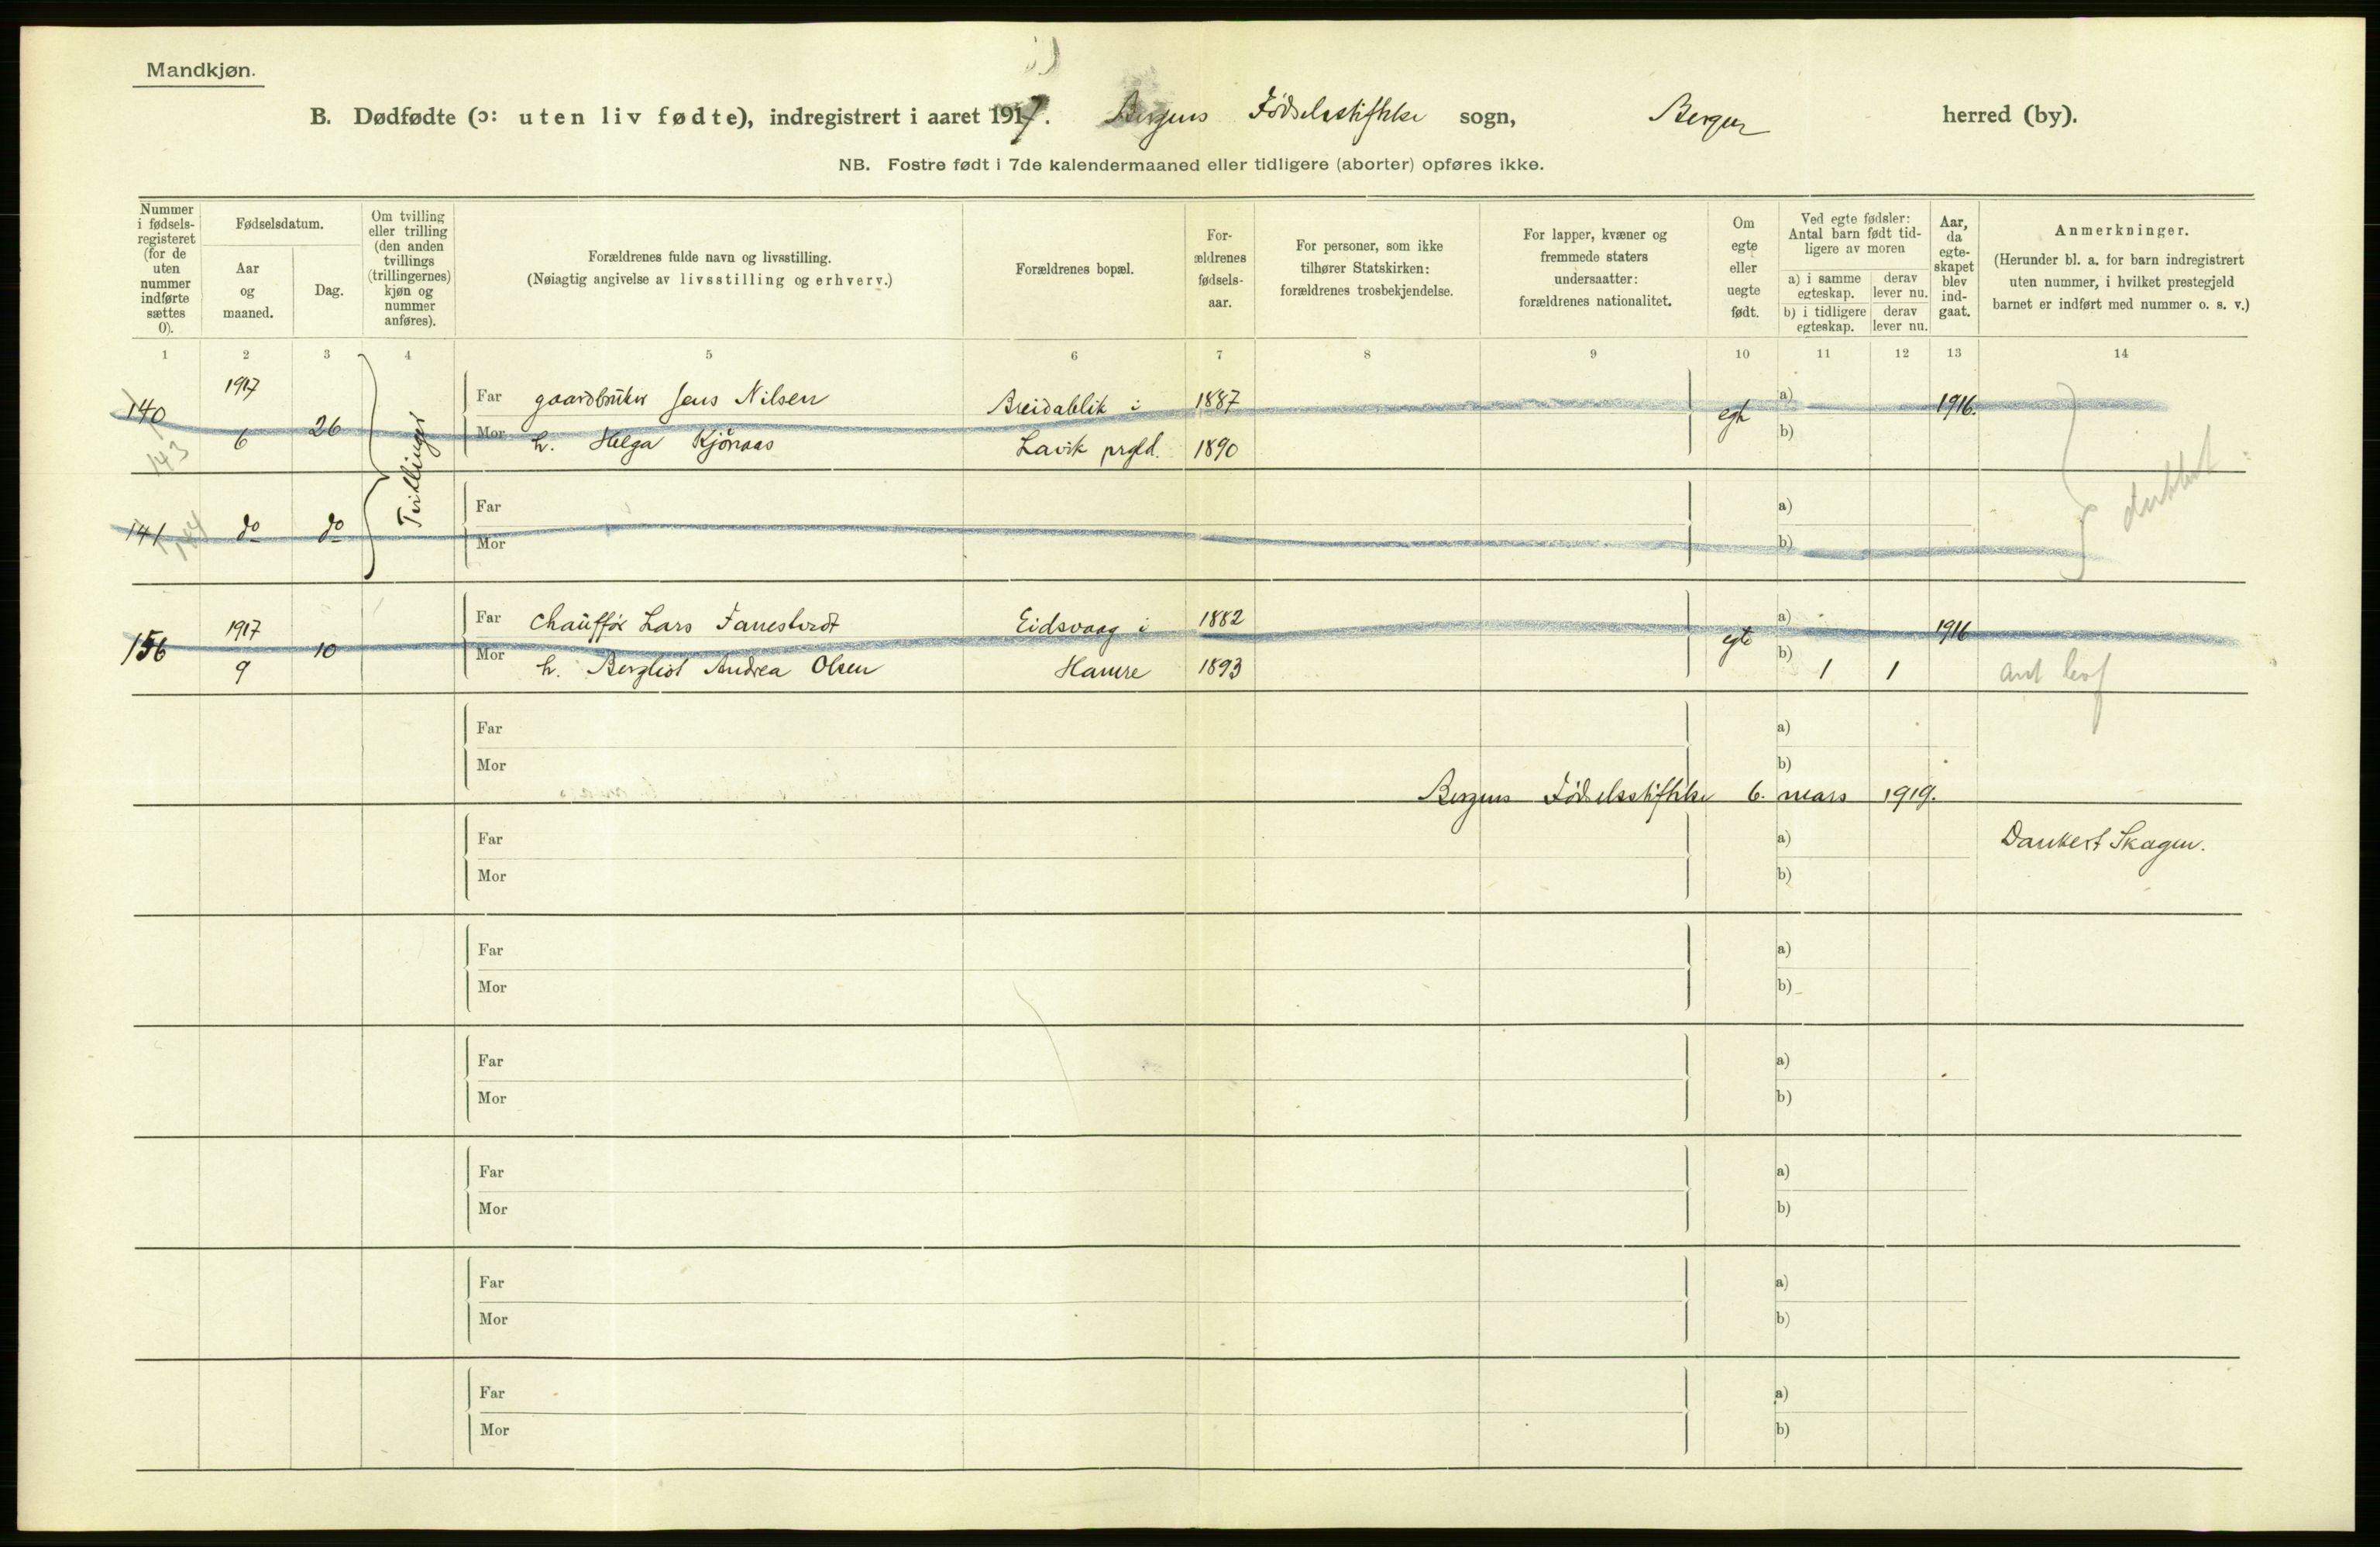 Mandkjøn.
B. Dødfødte (ɔ: uten liv fødte), indregistrert i aaret 1917. Bergens Fødselsstiftelse sogn, Bergen herred (by).
NB. Fostre født i 7de kalendermaaned eller tidligere (aborter) opføres ikke.
Nummer i fødsels-registeret (for de uten nummer indførte sættes 0).
Fødselsdatum.
Aar og maaned.
Dag.
Om tvilling eller trilling (den anden tvillings (trillingernes) kjøn og nummer anføres).
Forældrenes fulde navn og livsstilling.
(Nøiagtig angivelse av livsstilling og erhverv.)
Forældrenes bopæl.
For-ældrenes fødsels-aar.
For personer, som ikke tilhører Statskirken: forældrenes trosbekjendelse.
For lapper, kvæner og fremmede staters undersaatter: forældrenes nationalitet.
Om egte eller uegte født.
Ved egte fødsler: Antal barn født tid-ligere av moren
a) i samme egteskap. derav lever nu.
b) i tidligere egteskap. derav lever nu.
Aar, da egte-skapet blev ind-gaat.
Anmerkninger.
(Herunder bl. a. for barn indregistrert uten nummer, i hvilket prestegjeld barnet er indført med nummer o. s. v.)
1 2 3 4 5 6 7 8 9 10 11 12 13 14
140 1917 6 26 Far gaardbruker Jens Nilsen Breidablik i 1887 a) 1916.
143 Mor h. Helga Kjönaas Lavik prgld. 1890 b)
Tvillinger
141 do do Far a)
144 Mor b)
dubbelt
156 1917 9 10 Far Chauffør Lars Fanestvedt Eidsvaag i 1882 egte a) 1916
Mor h. Bergliot Andrea Olsen Hamre 1893 b) 1 1
Far a)
Mor b)
Bergens Fødselsstiftelse 6. mars 1919.
Far a) Dankert Skagen.
Mor b)
Far a)
Mor b)
Far a)
Mor b)
Far a)
Mor b)
Far a)
Mor b)
Far a)
Mor b)